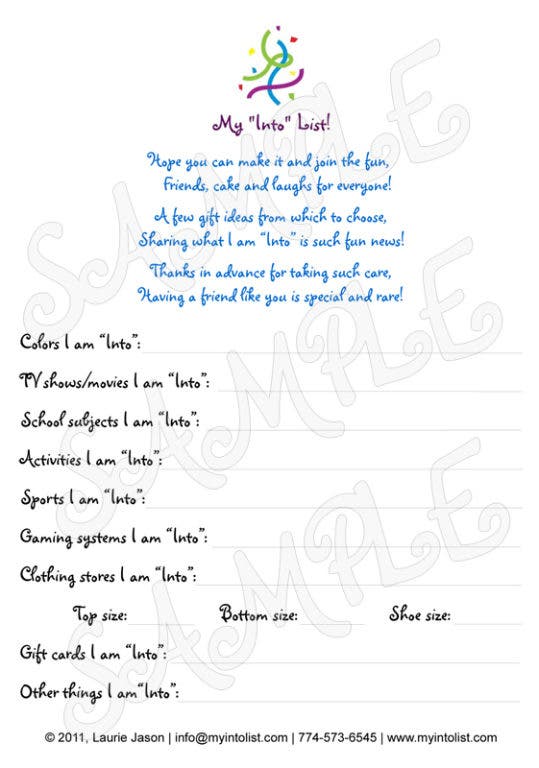 My "Into" List!
Hope you can make it and join the fun,
Friends, cake and laughs for everyone!
A few gift ideas from which to choose,
Sharing what I am “Into” is such fun news!
Thanks in advance for taking such care,
Having a friend like you is special and rare!
Colors I am “Into”:
TV shows/movies I am “Into”:
School subjects I am “Into”:
Activities I am “Into”:
Sports I am “Into”:
Gaming systems I am “Into”:
Clothing stores I am “Into”:
Top size: Bottom size: Shoe size:
Gift cards I am “Into”:
Other things I am“Into”:
© 2011, Laurie Jason | info@myintolist.com | 774-573-6545 | www.myintolist.com
SAMPLE
SAMPLE
SAMPLE